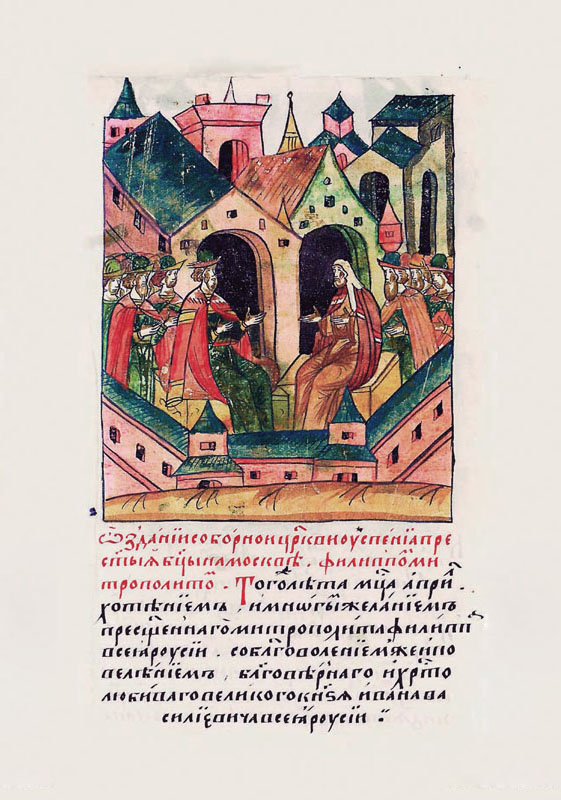 Ѿзданїи соборнои цр҃кви оуспенїа пре
стыѧ бц҃ы на москвѣ . филиппомъ ми
трополитѡ . Тогѡ лѣта мц҃а април
хотѣнїемъ , и мнѡгы желанїемъ
пресщеннаго митрополита филипп
всеѧ роусїи . со благоволенїем же и по
велѣнїемъ , благовѣрнаго и хрⷭ҇то
любиваго великого кнѧѕѧ ивана ва
силїевича всеѧ роусїи ..